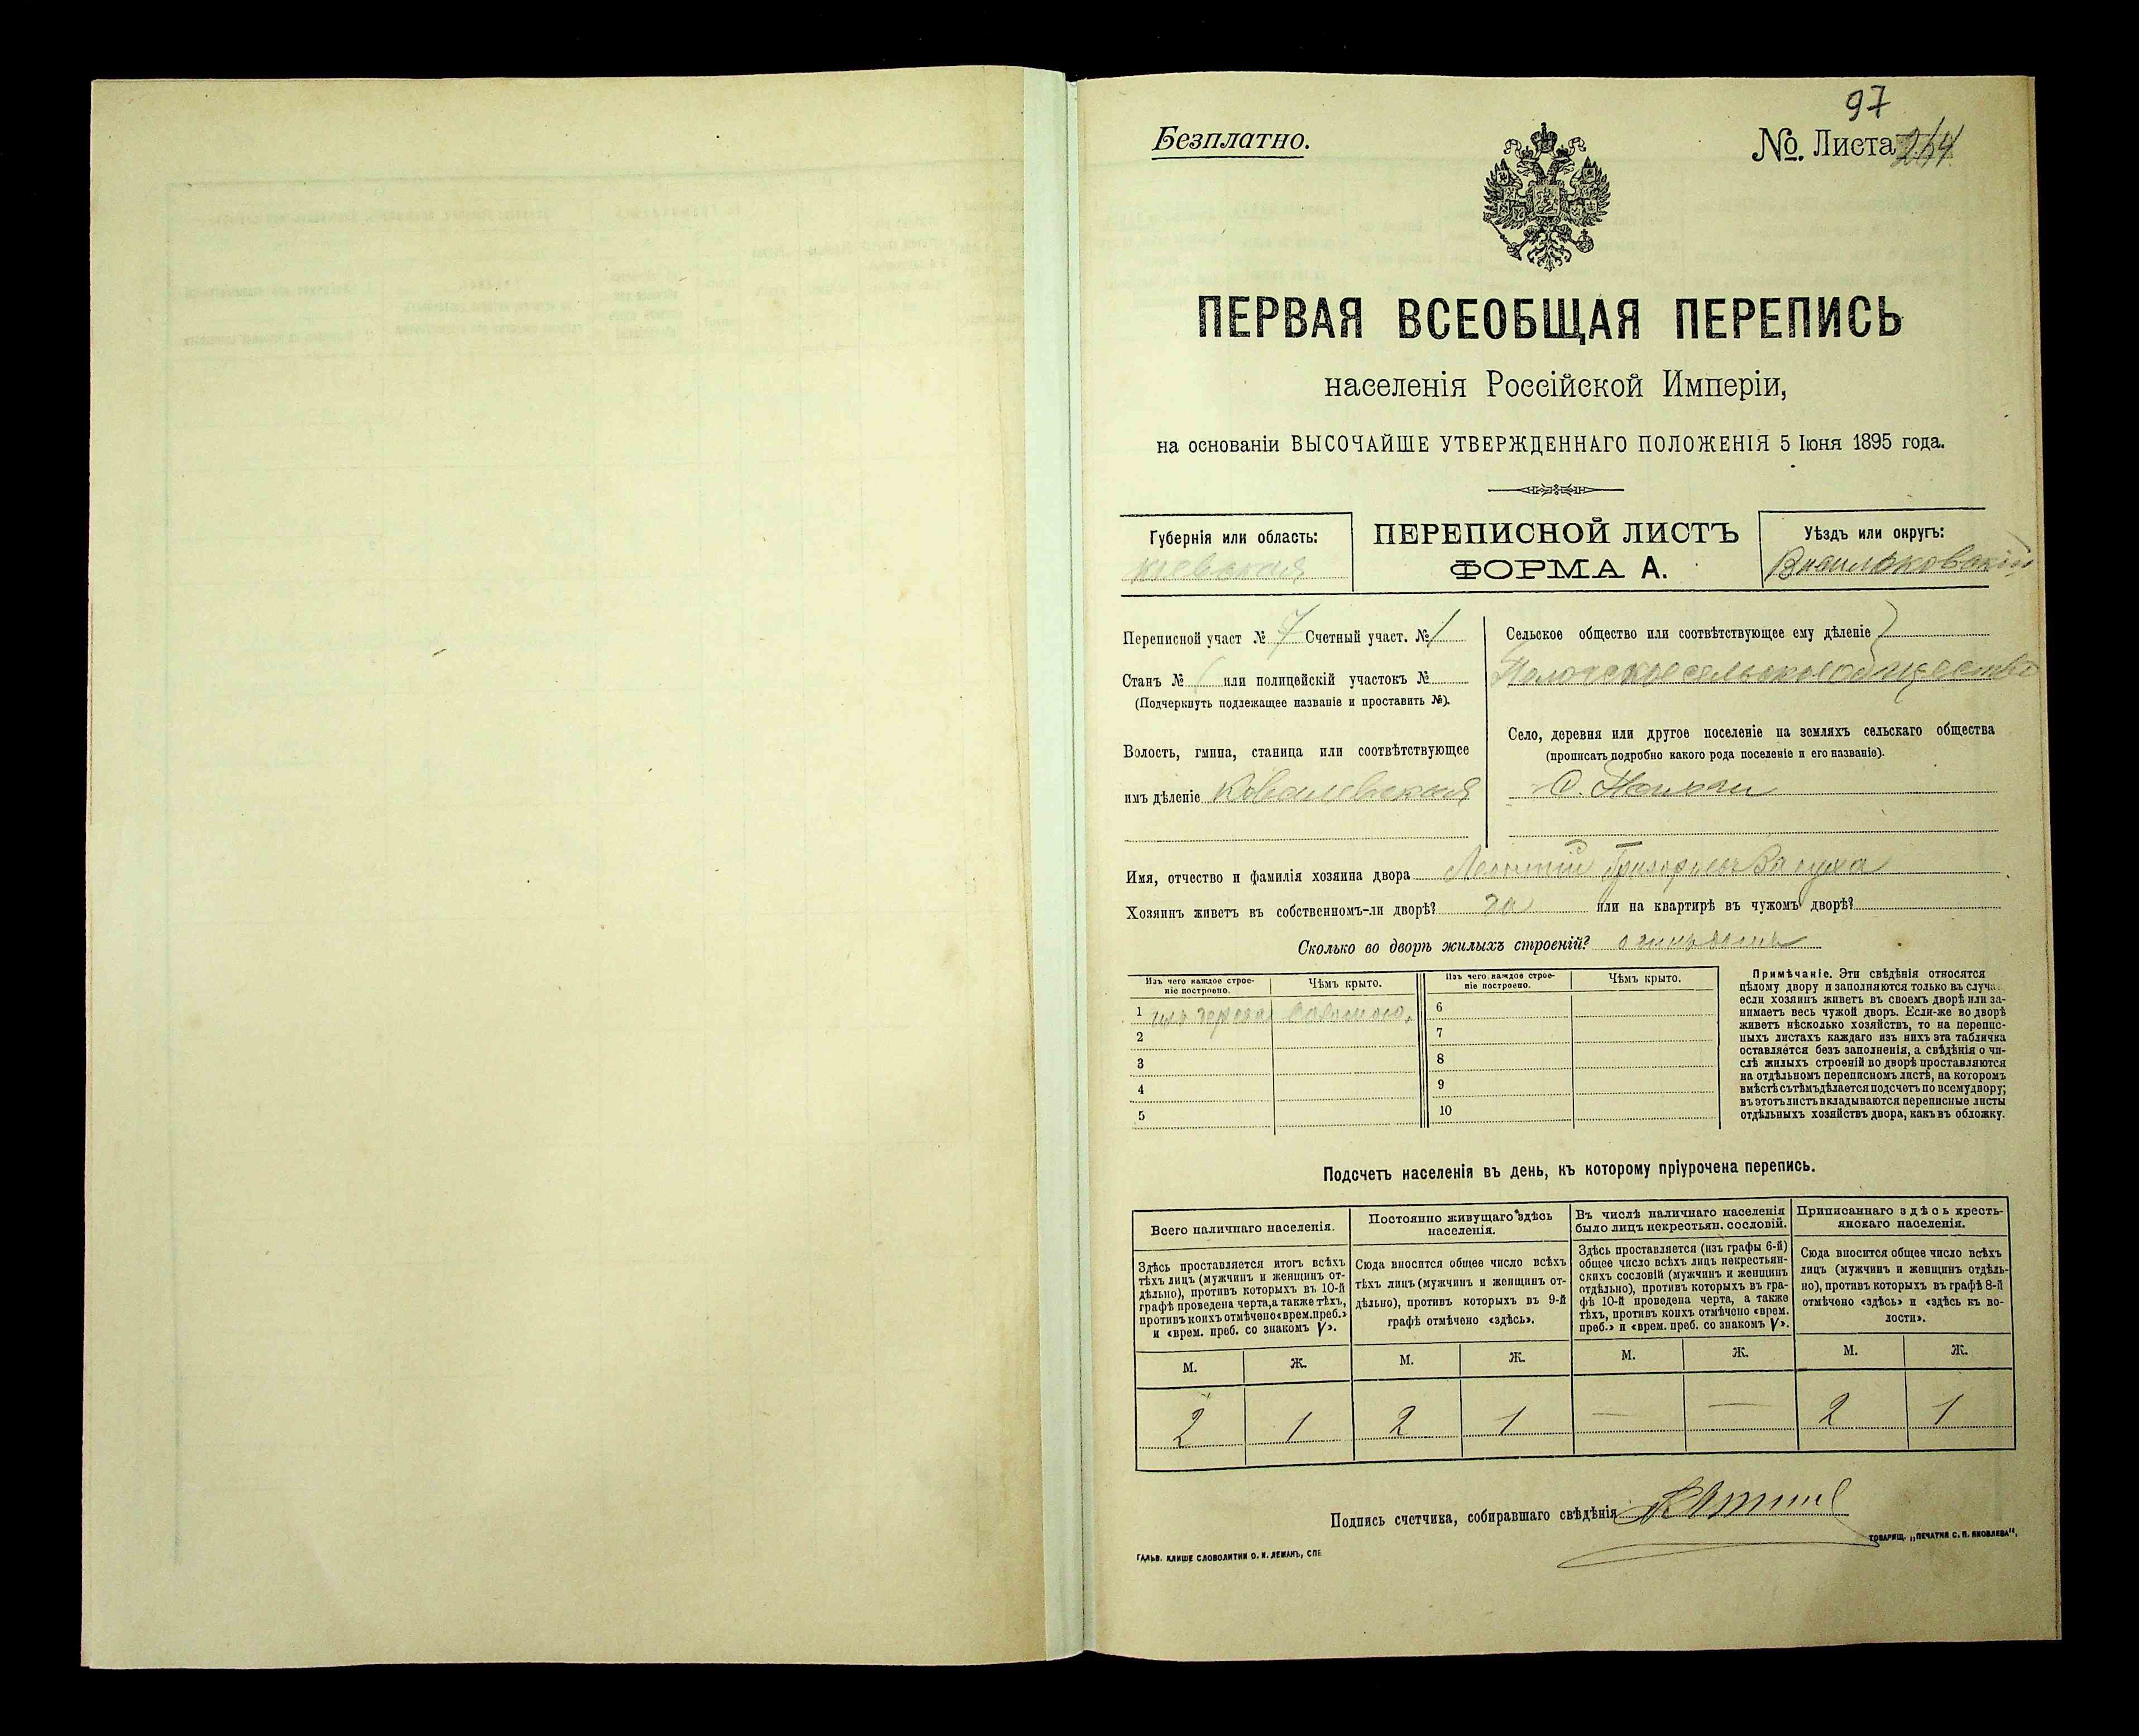 97
Безплатно.
№. Листа 264
ПЕРВАЯ ВСЕОБЩАЯ ПЕРЕПИСЬ
населенія Россійской Имперіи,
на основаніи ВЫСОЧАЙШЕ УТВЕРЖДЕННАГО ПОЛОЖЕНІЯ 5 Іюня 1895 года.
Губернія или область:
Кіевская
ПЕРЕПИСНОЙ ЛИСТЪ
ФОРМА А.
Уѣздъ или округъ:
Васильковскій
Переписной участ № 7 Счетный участ. № 1
Станъ № или полицейскій участокъ №
(Подчеркнуть подлежащее названіе и проставить №).
Волость, гмина, станица или соотвѣтствующее
имъ дѣленіе Ковалевская
Сельское общество или соотвѣтствующее ему дѣленіе
сельское общество
Село, деревня или другое поселеніе на земляхъ сельскаго общества
(прописать подробно какого рода поселеніе и его названіе).
С.
Имя, отчество и фамилія хозяина двора Леонтій Григорьевъ
Хозяинъ живетъ въ собственномъ-ли дворѣ? да или на квартирѣ въ чужомъ дворѣ?
Сколько во дворѣ жилыхъ строеній?
Изъ чего каждое строе-
ніе построено.
Чѣмъ крыто.
Изъ чего каждое строе-
ніе построено.
Чѣмъ крыто.
1 изъ дерева соломою,
2
3
4
5
6
7
8
9
10
Примѣчаніе. Эти свѣдѣнія относятся
цѣлому двору и заполняются только въ случа
если хозяинъ живетъ въ своемъ дворѣ или за-
нимаетъ весь чужой дворъ. Если-же во дворѣ
живетъ нѣсколько хозяйствъ, то на перепис-
ныхъ листахъ каждаго изъ нихъ эта табличка
оставляется безъ заполненія, а свѣдѣнія о чи-
слѣ жилыхъ строеній во дворѣ проставляются
на отдѣльномъ переписномъ листѣ, на которомъ
вмѣстѣ съ тѣмъ дѣлается подсчетъ по всему двору;
въ этотъ листъ вкладываются переписные листы
отдѣльныхъ хозяйствъ двора, какъ въ обложку.
Подсчетъ населенія въ день, къ которому пріурочена перепись.
Всего наличнаго населенія.
Здѣсь проставляется итогъ всѣхъ
тѣхъ лицъ (мужчинъ и женщинъ от-
дѣльно), противъ которыхъ въ 10-й
графѣ проведена черта, а также тѣхъ,
противъ коихъ отмѣчено «врем. преб.»
и «врем. преб. со знакомъ V».
Постоянно живущаго здѣсь
населенія.
Сюда вносится общее число всѣхъ
тѣхъ лицъ (мужчинъ и женщинъ от-
дѣльно), противъ которыхъ въ 9-й
графѣ отмѣчено «здѣсь».
Въ числѣ наличнаго населенія
было лицъ некрестьян. сословій.
Здѣсь проставляется (изъ графы 6-й)
общее число всѣхъ лицъ некрестьян-
скихъ сословій (мужчинъ и женщинъ
отдѣльно), противъ которыхъ въ гра-
фѣ 10-й проведена черта, а также
тѣхъ, противъ коихъ отмѣчено «врем.
преб.» и «врем. преб. со знакомъ V».
Приписаннаго здѣсь кресть-
янскаго населенія.
Сюда вносится общее число всѣхъ
лицъ (мужчинъ и женщинъ отдѣль-
но), противъ которыхъ въ графѣ 8-й
отмѣчено «здѣсь» и «здѣсь въ во-
лости».
М. Ж. М. Ж. М. Ж. М. Ж.
2 1 2 1 — — 2 1
Подпись счетчика, собиравшаго свѣдѣнія
ТОВАРИЩ. „ПЕЧАТНЯ С. П. ЯКОВЛЕВА“.
ГАЛЬВ. КЛИШЕ СЛОВОЛИТНИ О. И. ЛЕМАНЪ, СПБ